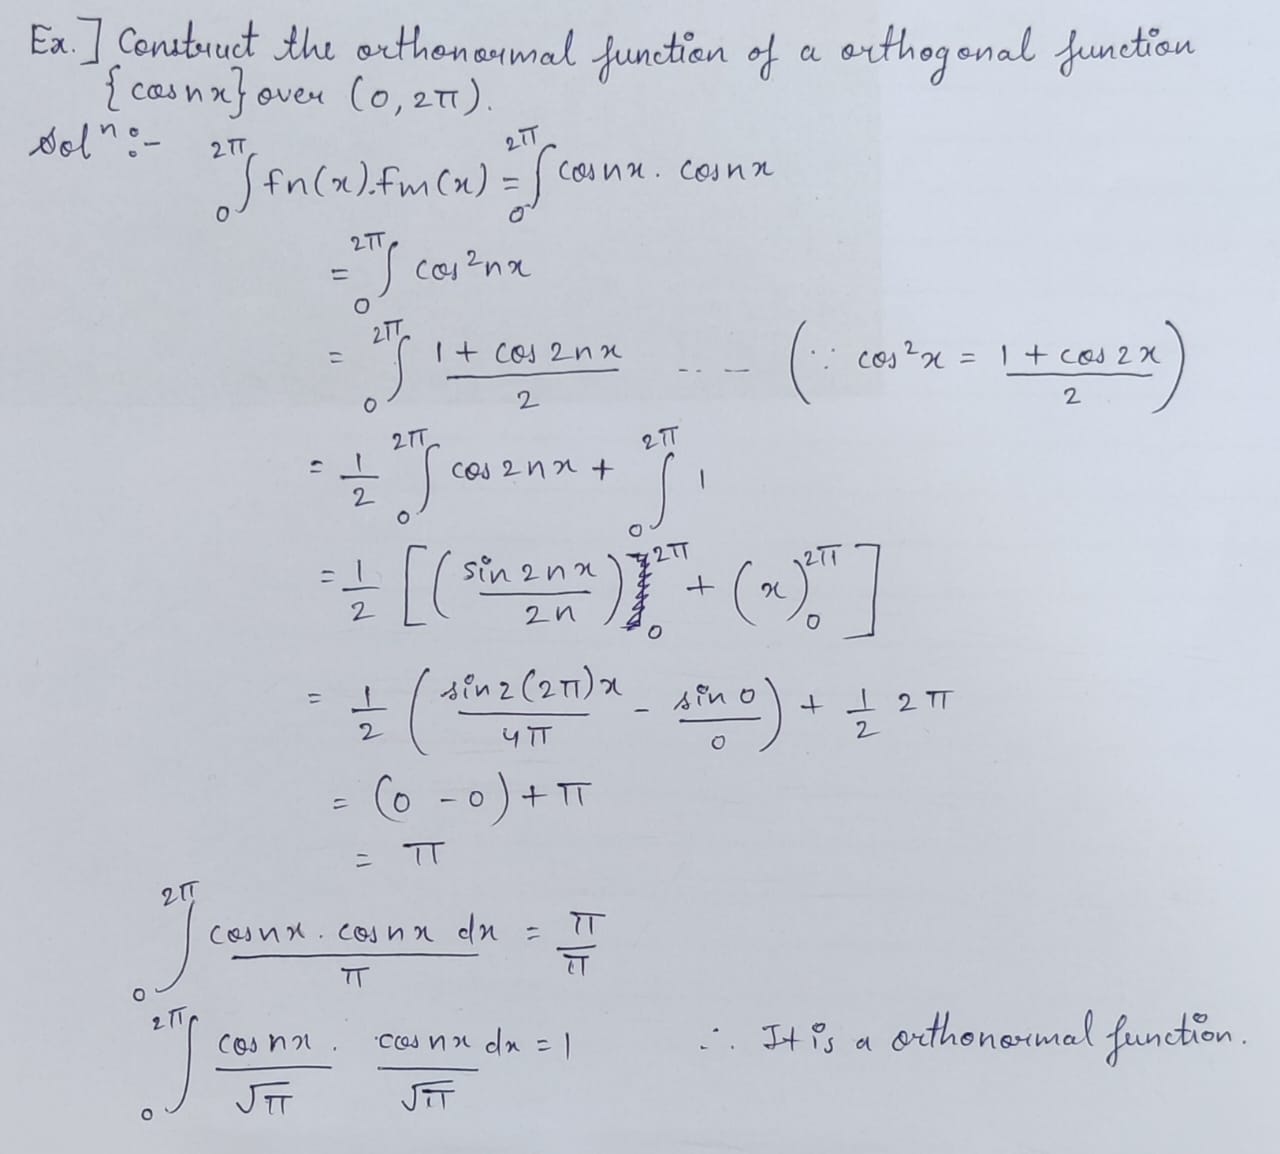 Ex.] Construct the orthonormal function of a orthogonal function
{cosnx} over (0, 2π).
Solⁿ:-
∫₀^2π fn(x).fm(x) = ∫₀^2π cosnx. cosnx
= ∫₀^2π cos²nx
= ∫₀^2π (1 + cos 2nx)/2 ..-- (∵ cos²x = (1 + cos 2x)/2)
= 1/2 ∫₀^2π cos 2nx + ∫₀^2π 1
= 1/2 [(sin 2nx / 2n)₀^2π + (x)₀^2π]
= 1/2 (sin 2(2π)x / 4π - sin 0 / 0) + 1/2 2π
= (0 - 0) + π
= π
∫₀^2π (cosnx. cosnx dx)/π = π/π
∫₀^2π cosnx/√π . cosnx/√π dx = 1 ∴ It is a orthonormal function.